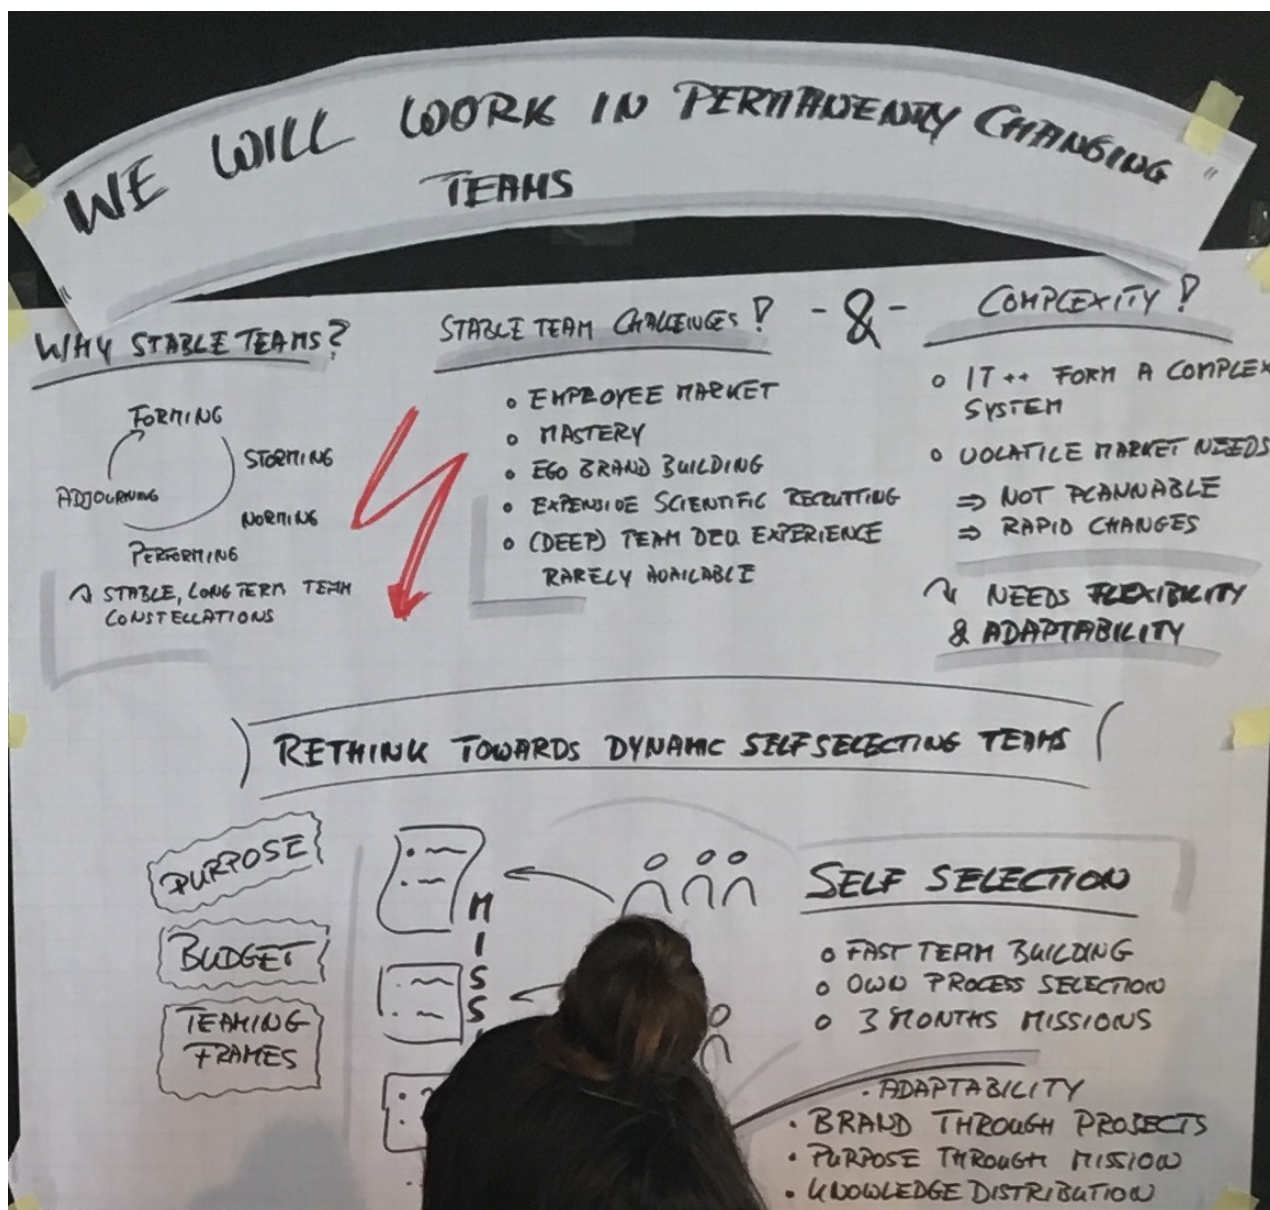 WE WILL WORK IN PERMANENTLY CHANGING
TEAMS
WHY STABLE TEAMS?
FORMING
STORMING
ADJOURNING
NORMING
PERFORMING
STABLE, LONG TERM TEAM
CONSTELLATIONS
STABLE TEAM CHALLENGES!
EMPLOYEE MARKET
MASTERY
EGO BRAND BUILDING
EXPENSIVE SCIENTIFIC RECRUTTING
(DEEP) TEAM DEV. EXPERIENCE
RARELY AVAILABLE
- & -
COMPLEXITY!
IT ++ FORM A COMPLEX
SYSTEM
VOLATILE MARKET NEEDS
⇒ NOT PLANNABLE
⇒ RAPID CHANGES
NEEDS FLEXIBILITY
& ADAPTABILITY
RETHINK TOWARDS DYNAMIC SELFSELECTING TEAMS
PURPOSE
BUDGET
TEAMING
FRAMES
SELF SELECTION
FAST TEAM BUILDING
OWN PROCESS SELECTION
3 MONTHS MISSIONS
· ADAPTABILITY
· BRAND THROUGH PROJECTS
· PURPOSE THROUGH MISSION
· KNOWLEDGE DISTRIBUTION